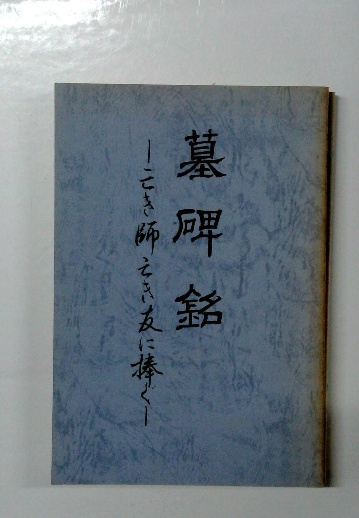 墓碑銘
―亡き師亡き友に捧ぐ―